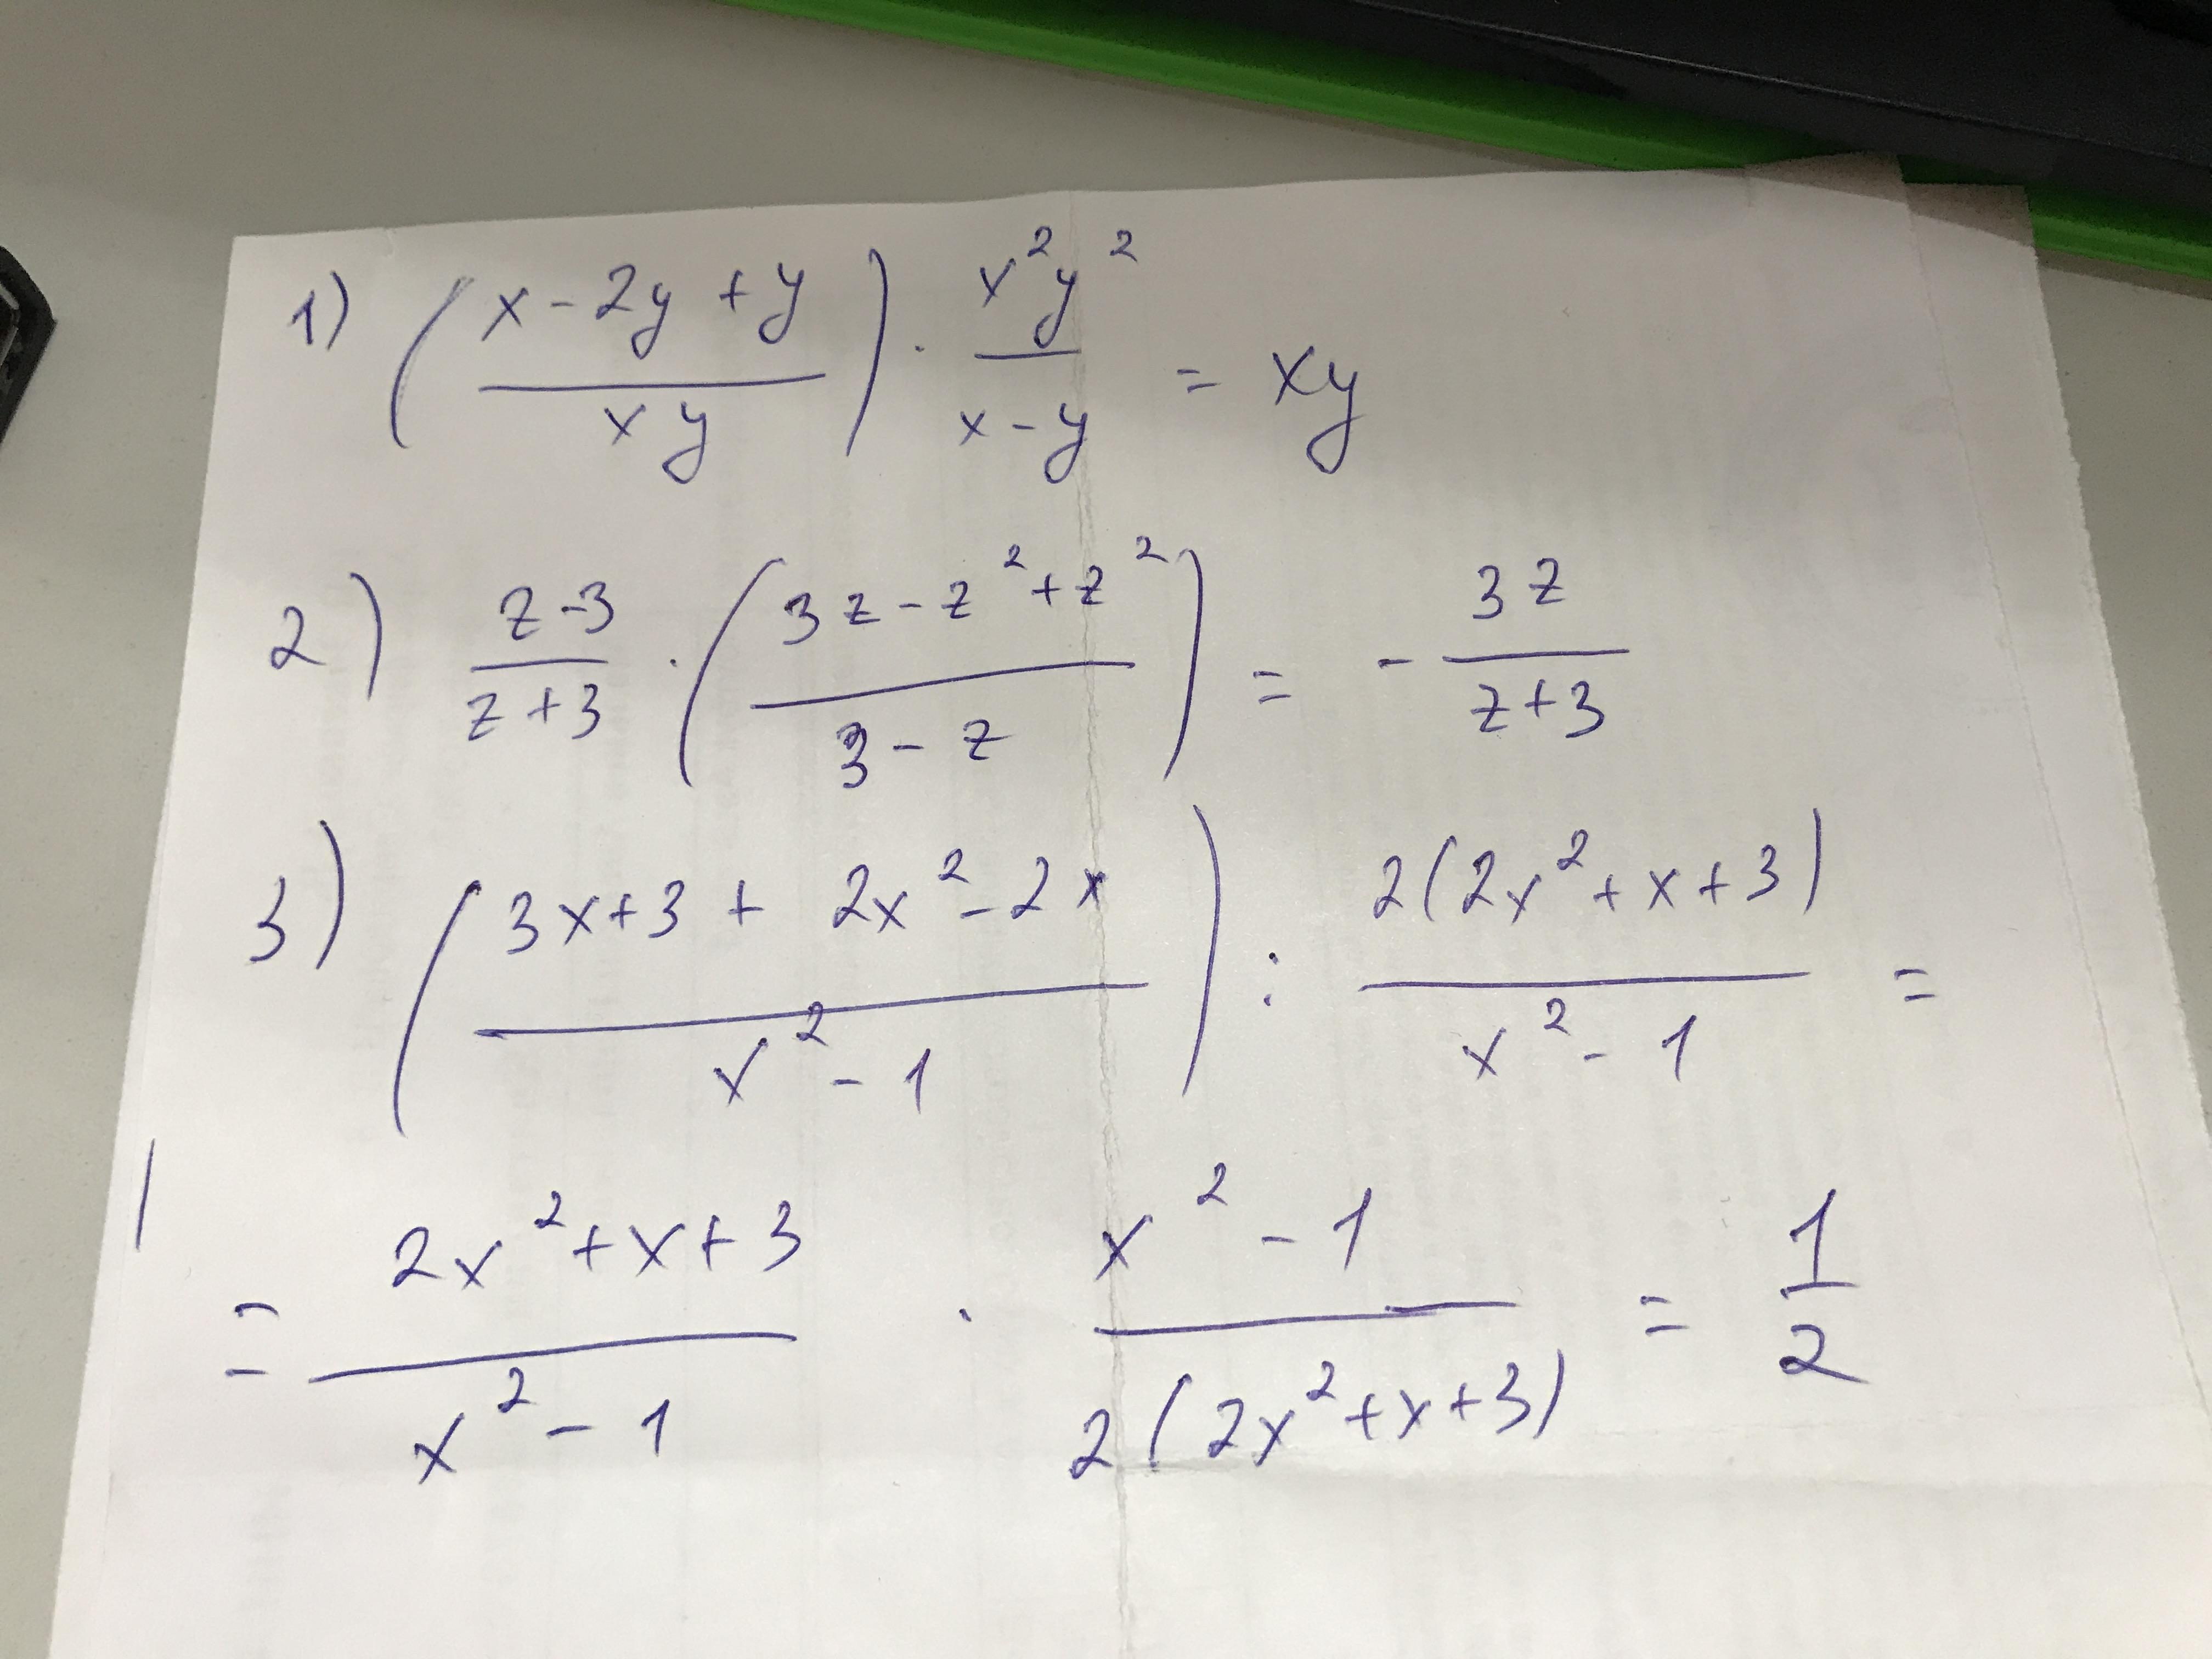 1) ( (x - 2y + y) / (xy) ) · (x²y²) / (x - y) = xy
2) (z - 3) / (z + 3) · ( (3z - z² + z²) / (3 - z) ) = - (3z) / (z + 3)
3) ( (3x + 3 + 2x² - 2x) / (x² - 1) ) : (2(2x² + x + 3)) / (x² - 1) =
= (2x² + x + 3) / (x² - 1) · (x² - 1) / (2(2x² + x + 3)) = 1/2